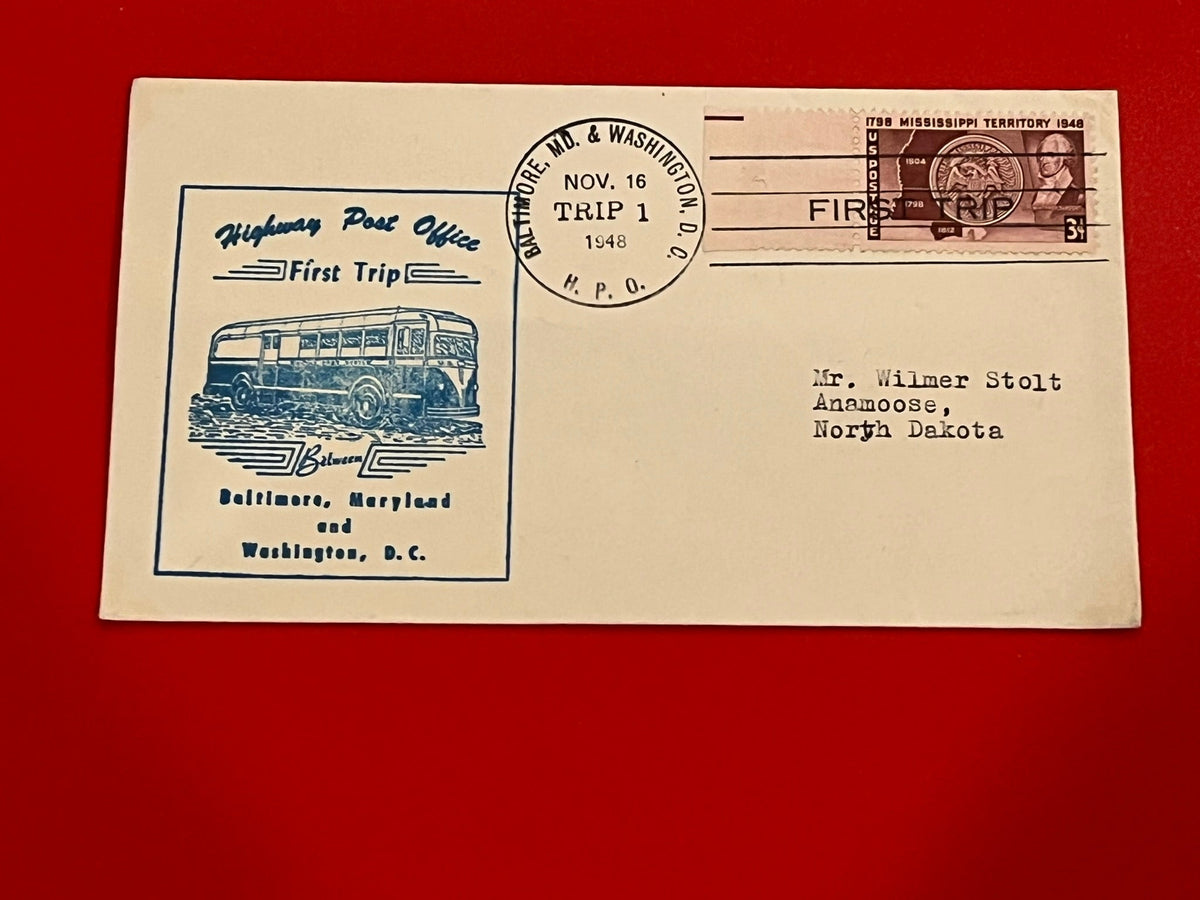 Highway Post Office
First Trip
Between
Baltimore, Maryland
and
Washington, D.C.
BALTIMORE, MD. & WASHINGTON, D. C.
NOV. 16
TRIP 1
1948
H. P. O.
1798 MISSISSIPPI TERRITORY 1948
US POSTAGE
1804
1798
1812
3¢
FIRST TRIP
Mr. Wilmer Stolt
Anamoose,
North Dakota